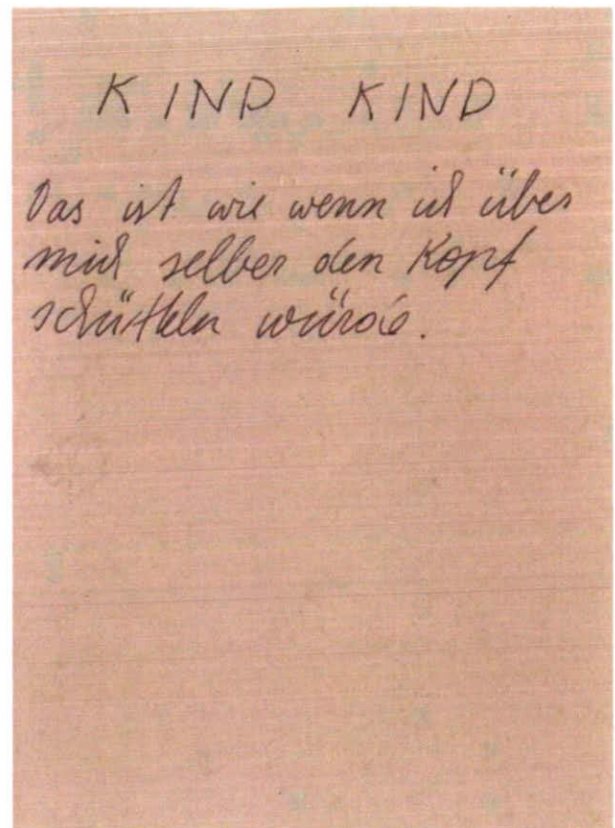 KIND KIND
Das ist wie wenn ich über
mich selber den Kopf
schütteln würde.